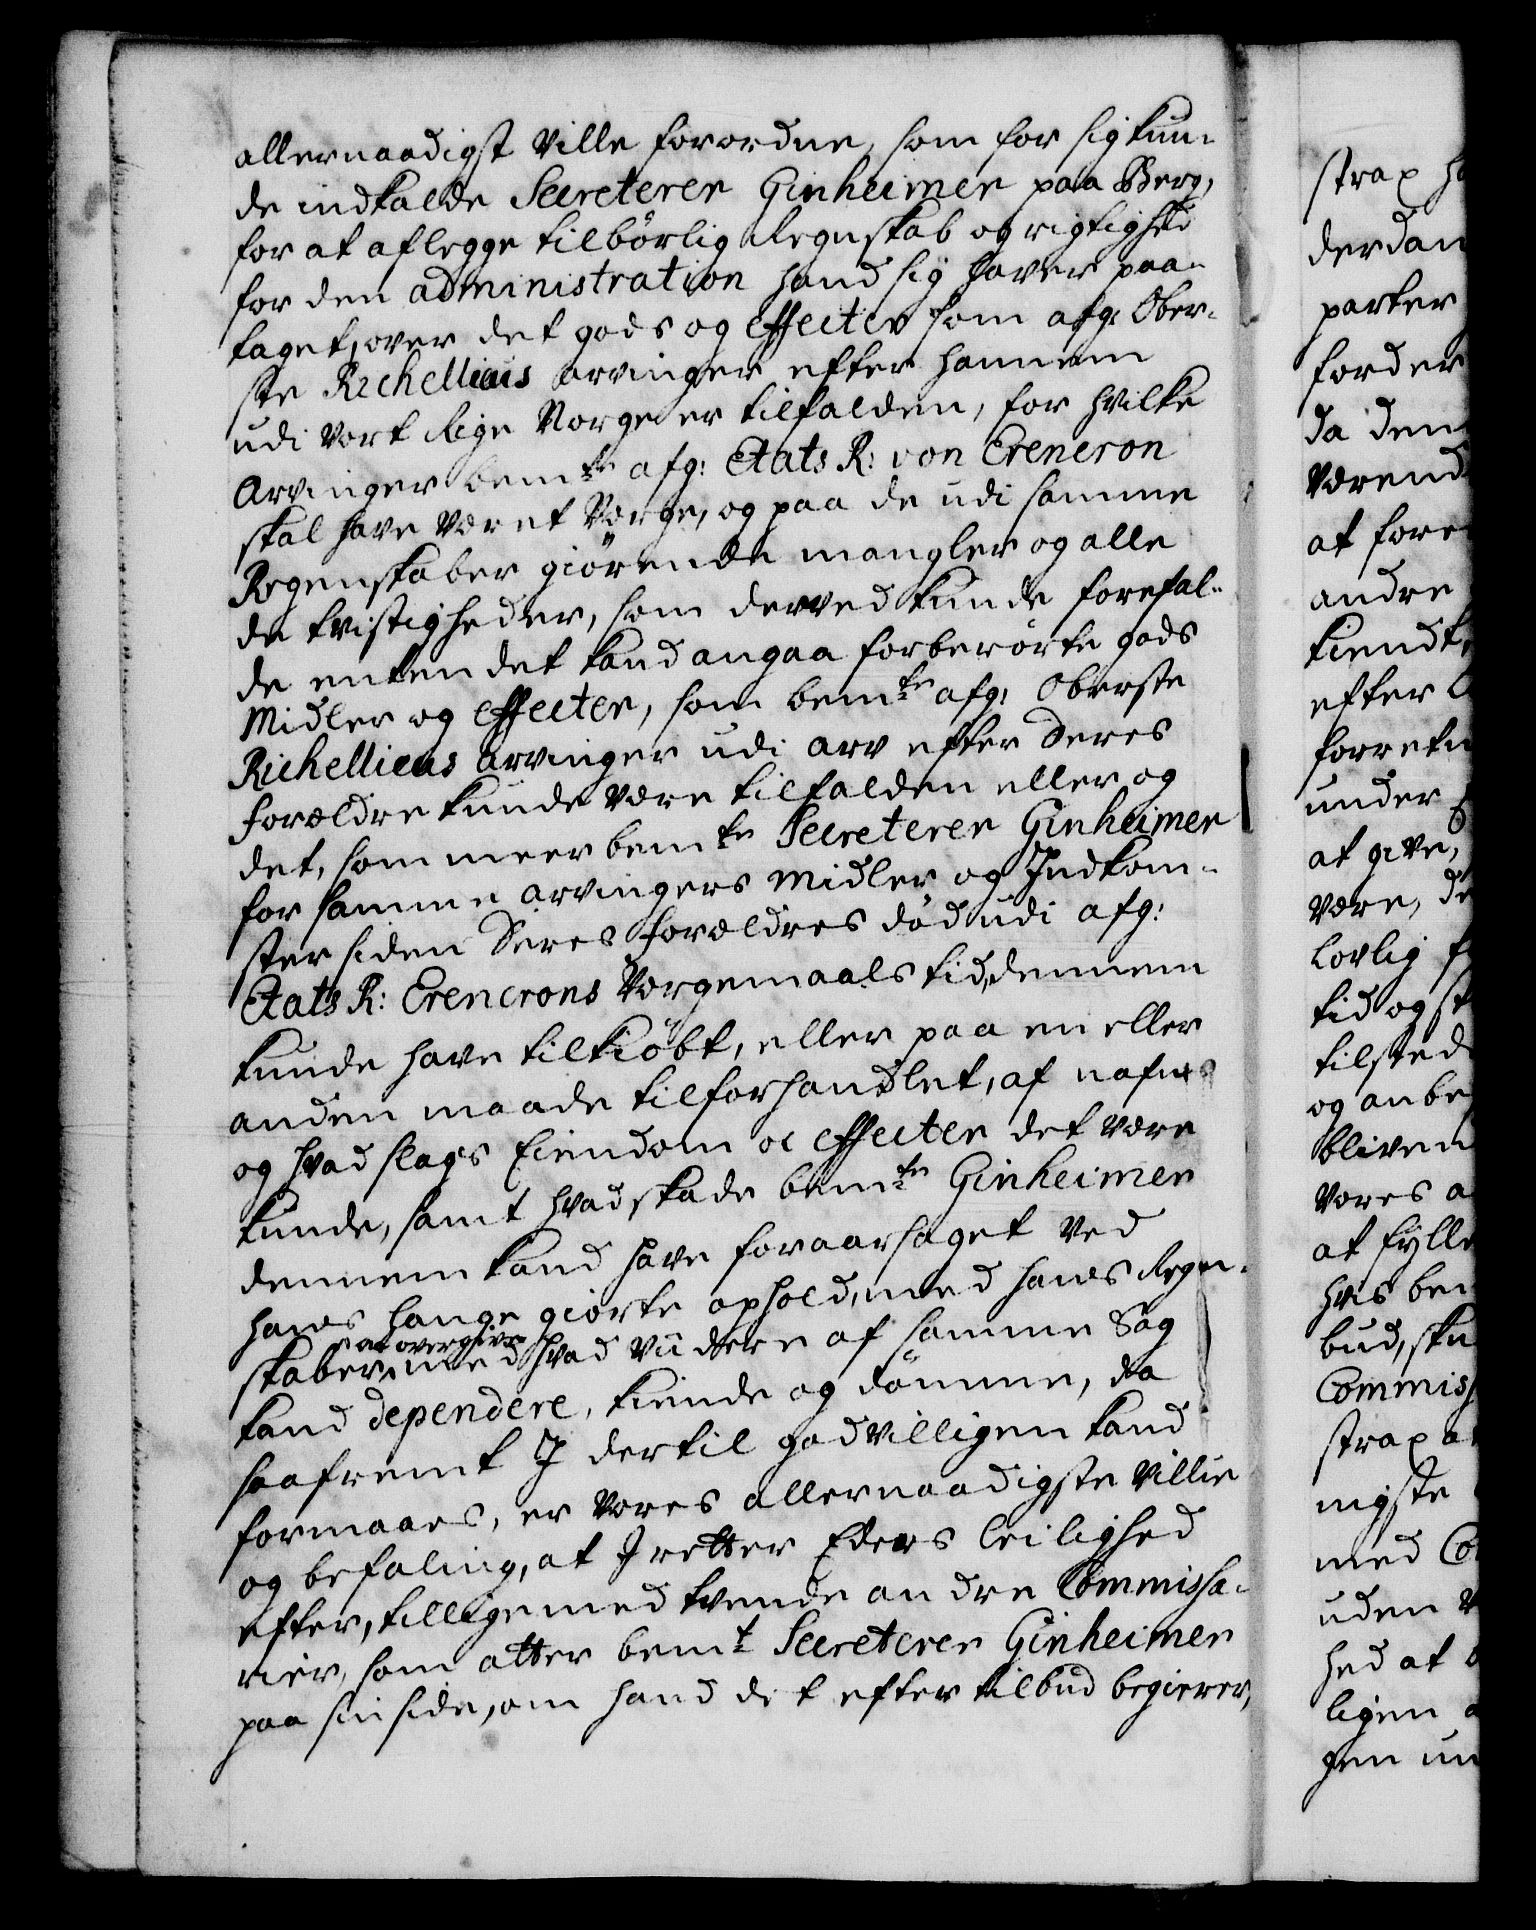 allernaadigst Ville forordne, som for sig kun-
de indkalde Secreterer Ginheimer paa Berg,
for at aflegge tilbørlig Regnskab og rigtighed
for den administration hand sig haver paa-
taget, over det gods og effecter som afg: Ober-
ste Richellieus arvinger efter hannem
udi Vort Rige Norge er tilfalden, for hvilke
Arvinger bemte afg: Etats R: von Erencron
skal have Været Værge, og paa de udi samme
Regenskaber giørende mangler og alle
de tvistigheder, som derved kunde forefal-
de enten det kand angaa forberørte gods
Midler og effecter, som bemte afg: Oberste
Richellieus arvinger udi arv efter deres
forældre kunde være tilfalden eller og
det, som meerbemte Secreterer Ginheimer
for samme arvingers midler og Indkom-
ster siden deres forældres død udi afg:
Etats R: Erencrons Værgemaals tid, dennem
kunde have tilkiøbt, eller paa en eller
anden maade tilforhandlet, af nafn
og hvad slags Eiendom oc effecter det være
kunde, samt hvad skade bemte Ginheimer
dennem kand have foraarsaget ved
hans lange giorte ophold, med hans Regn-
skaber at overgive med hvad viidere af samme Sag
kand dependere, kiende og dømme, da
saafremt I dertil godvilligen kand
formaaes, er Vores allernaadigste Villie
og befaling, at I retter Eders leilighed
efter, tilligemed tvende andre Commissa-
rier, som atter bemt Secreterer Ginheimer
paa sin side, om hand det efter tilbud begierer,
strax
derdan
parter
forder
da den
værend
at fore
andre
kiendt
efter
forretn
under
at give,
være, de
lovlig
tid og st
tilsted
og anbe
bliven
Vores a
at fylle
hvis ben
bud, sku
Commiss
strax a
nigste
med Co
uden
hed at
ligen
gen un